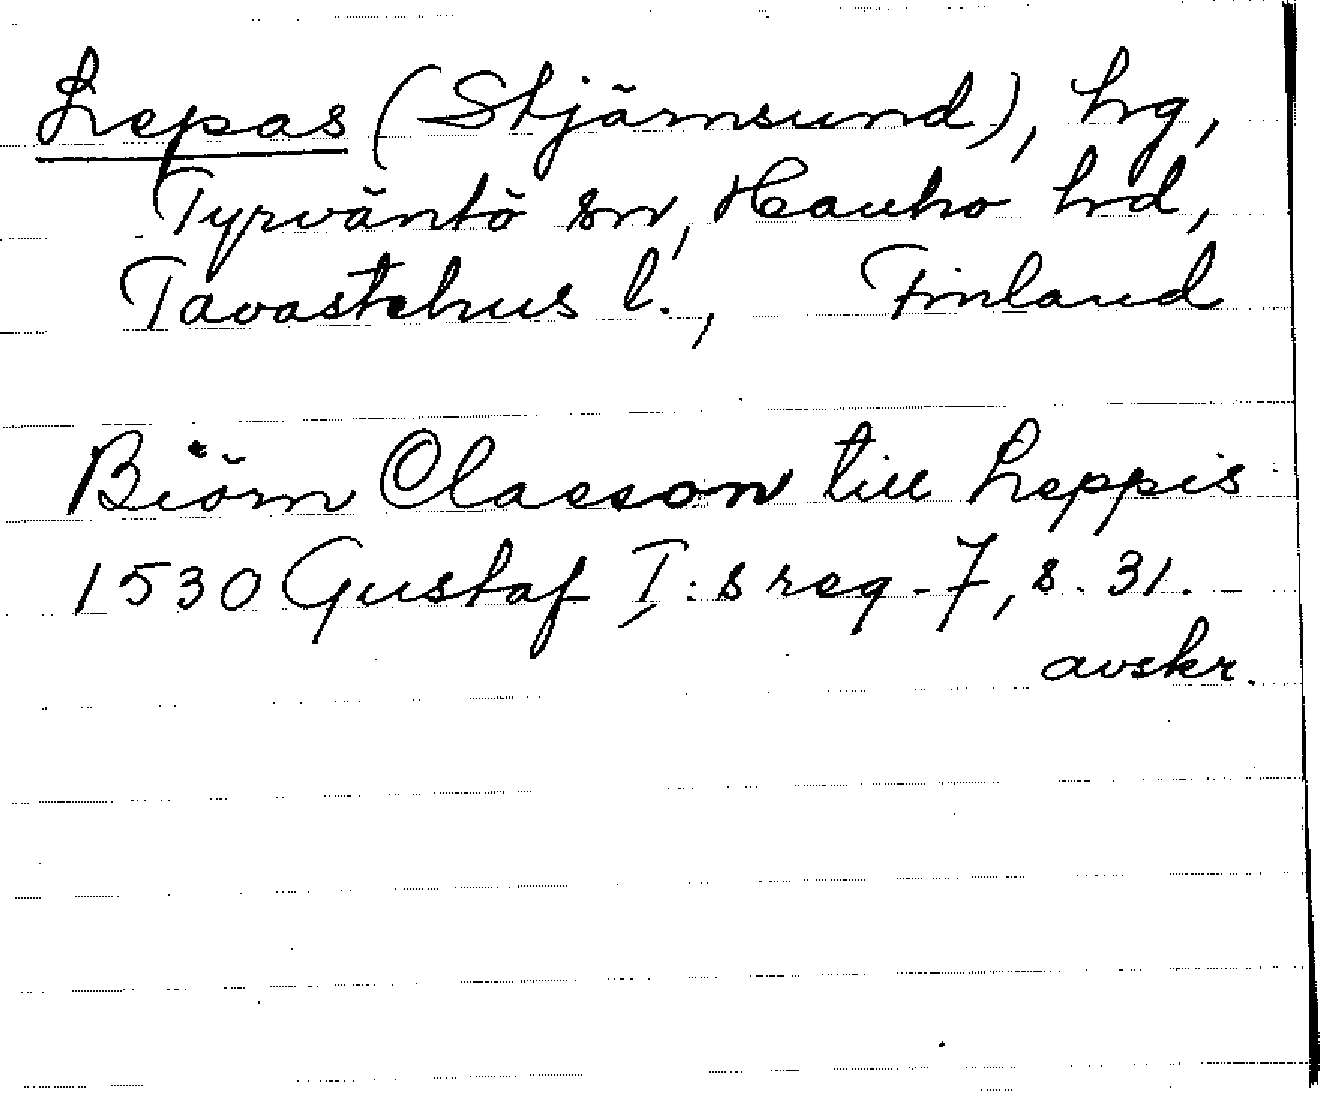 Lepas (Stjärnsund), hg,
Tyrväntö sn, Hauho hd,
Tavastehus l., Finland
Biörn Classon till Leppis
1530 Gustaf I:s reg. 7, s. 31. –
avskr.